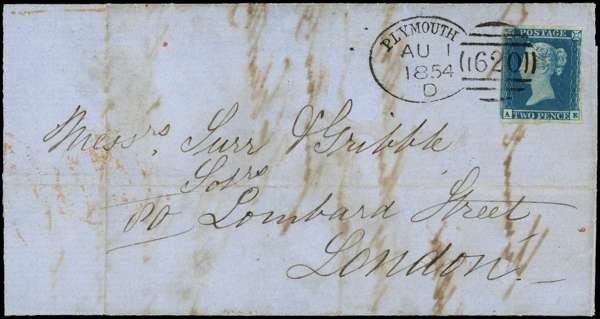 PLYMOUTH
AU 1
1854
D
620
POSTAGE
TWO PENCE
Messrs Surr & Gribble
Solrs
80 Lombard Street
London